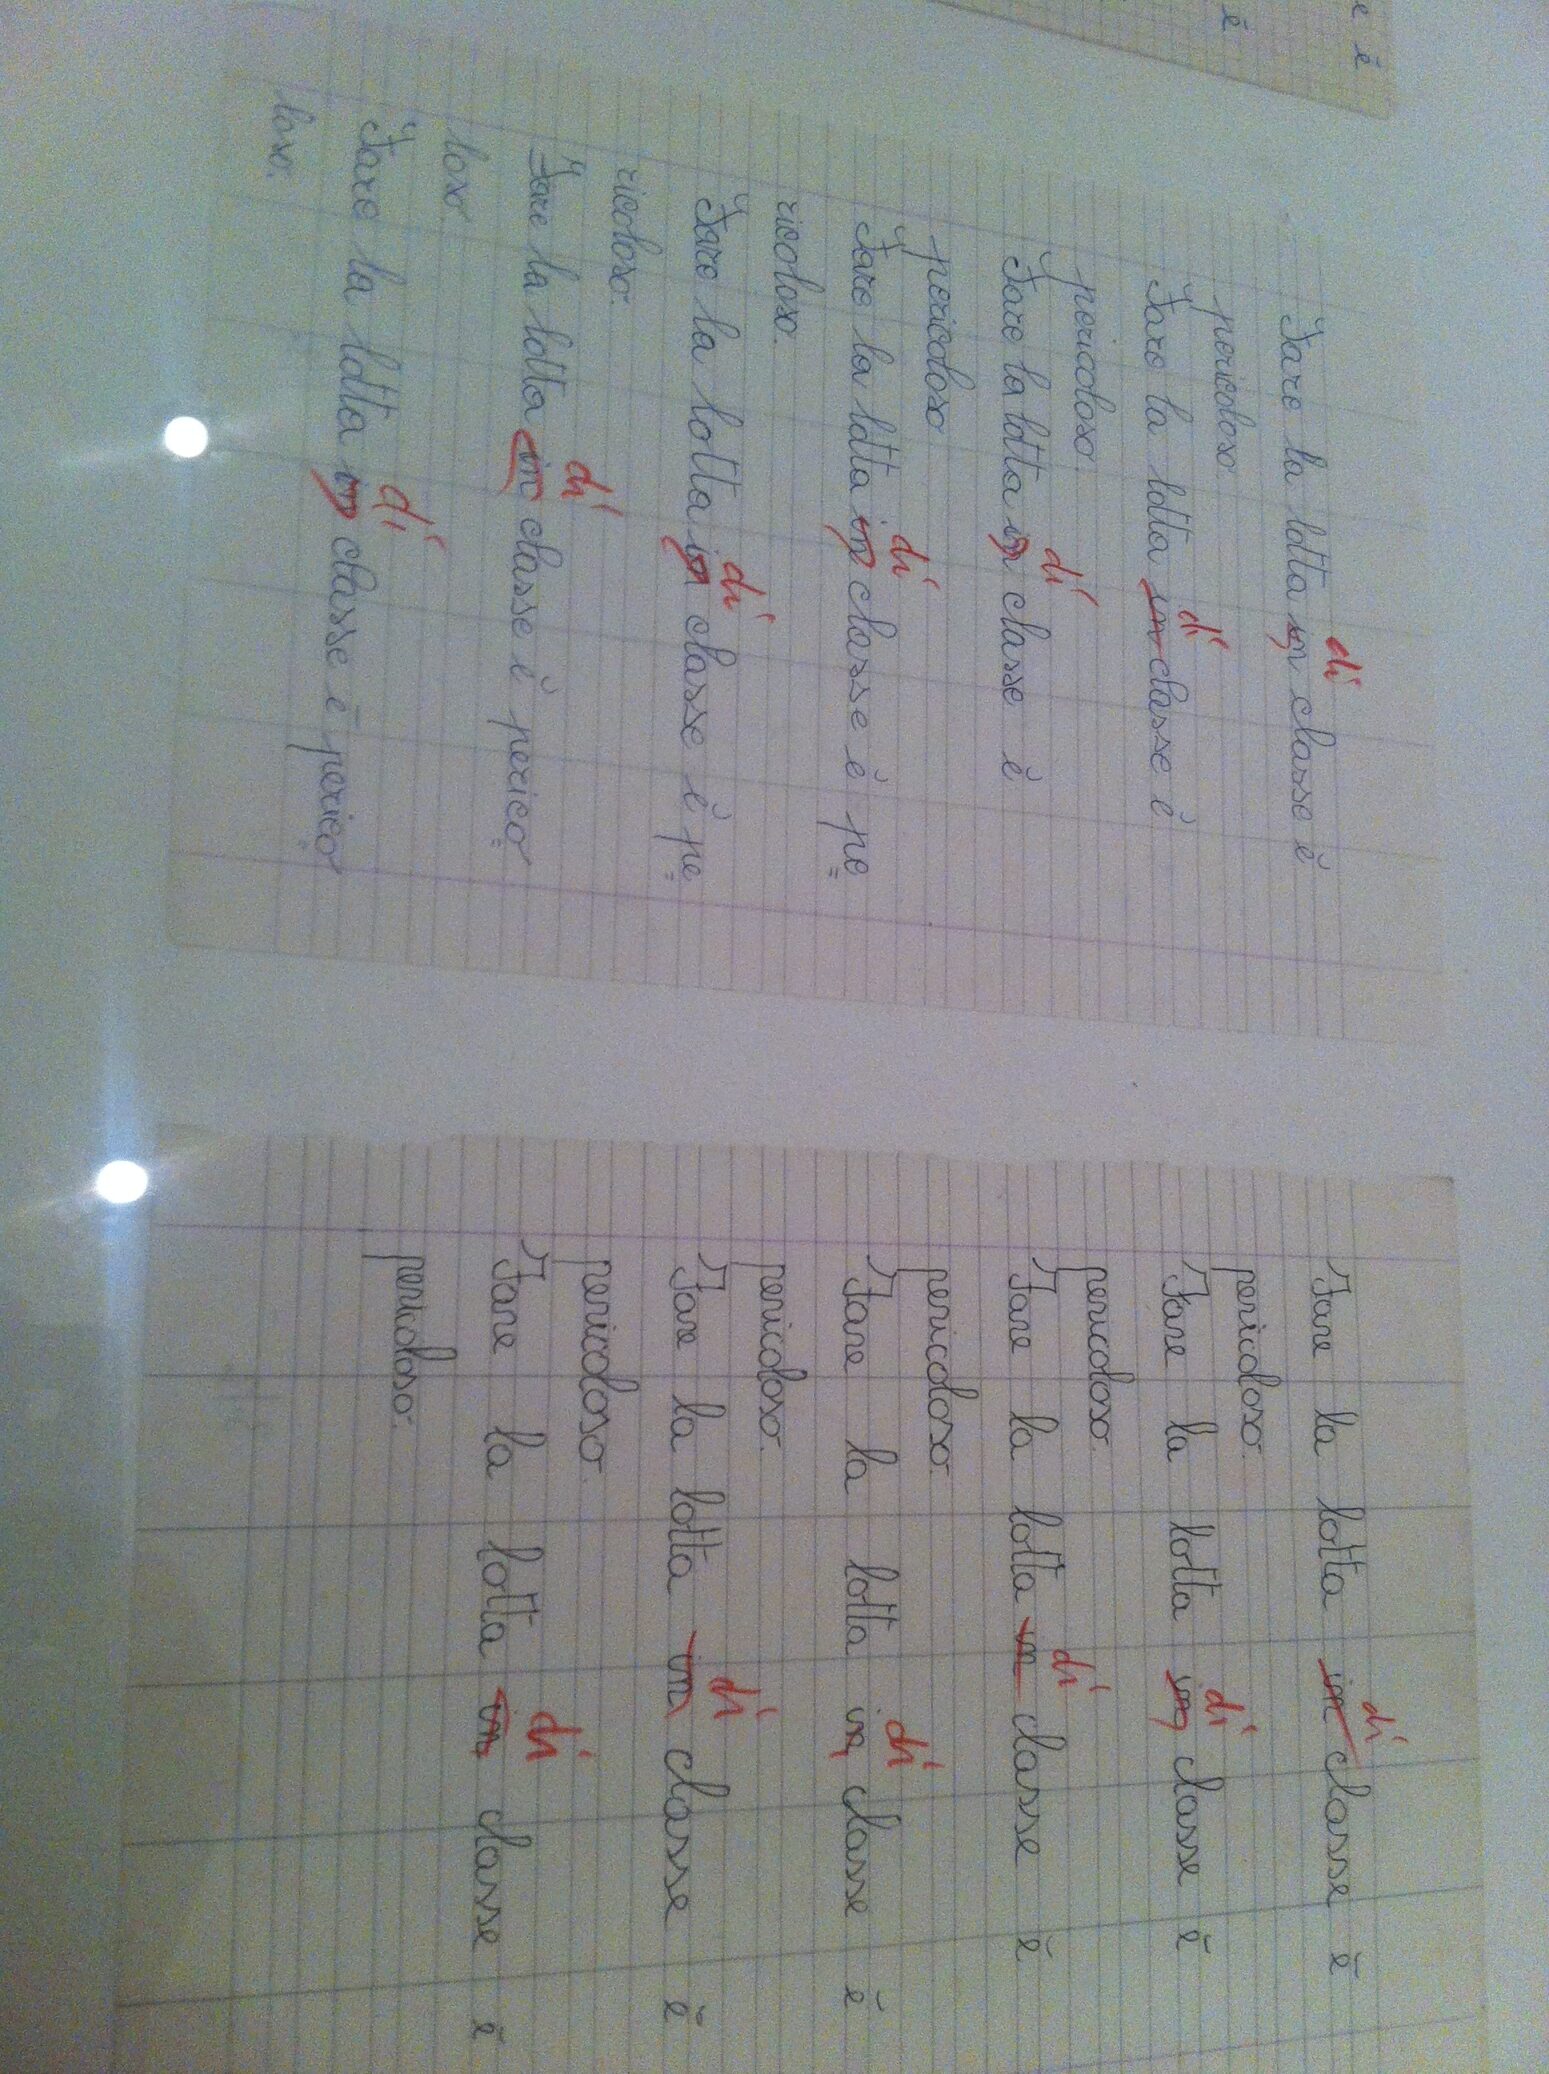 e è
è
di
Fare la lotta in classe è
pericoloso.
di
Fare la lotta in classe è
pericoloso.
di
Fare la lotta in classe è
pericoloso
di
Fare la lotta in classe è pe=
ricoloso.
di
Fare la lotta in classe è pe=
ricoloso.
di
Fare la lotta in classe è perico=
loso.
di
Fare la lotta in classe è perico=
loso.
di
Fare la lotta in classe è
pericoloso.
di
Fare la lotta in classe è
pericoloso.
di
Fare la lotta in classe è
pericoloso.
di
Fare la lotta in classe è
pericoloso.
di
Fare la lotta in classe è
pericoloso.
di
Fare la lotta in classe è
pericoloso.